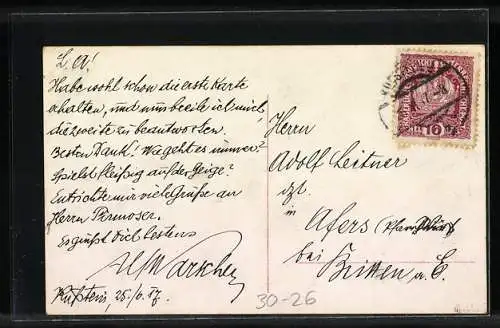 L. A!
Habe wohl schon die erste Karte
erhalten, und nun beeile ich mich
die zweite zu beantworten.
Besten Dank! Wie geht es immer?
Spielst fleißig auf der Geige?
Entrichte mir viele Grüße an
Herrn
Es grüßt Dich bestens
Kufstein, 25./6. 17.
Herrn
Adolf Leitner
dzt.
in Afers
bei Brixen a. E.
10
30-26